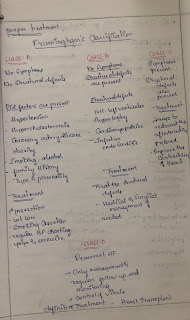 proper treatment
Framingham's Classification
CLASS-A
No Symptoms
No Structural defects
Risk factors are present
- Hypertension
- Hypercholesteremia
- Coronary artery disease
- obesity
- Smoking alcohol
- family History
- Type A personality
- Treatment
- prevention
- wt loss
- Smoking Cessation
- regular BP charting
CLASS-B
No Symptoms
Structural defects
are present
Structural defects
- left ventricular
Hypertrophy
- Cardiomyopathies
- Infective
endocarditis
- Treatment
Treat the structural
defects
- Medical & Surgical
management if
needed
CLASS-C
Symptoms
present
Structural
defects also
present
- Treatment
drugs to
reduced the
afterload,
preload
- Improve the
Contractility of
Heart
CLASS-D
Decompensated HF
- Only management is
regular follow up and
monitoring
- Control of vitals
definitive treatment - Heart Transplant.